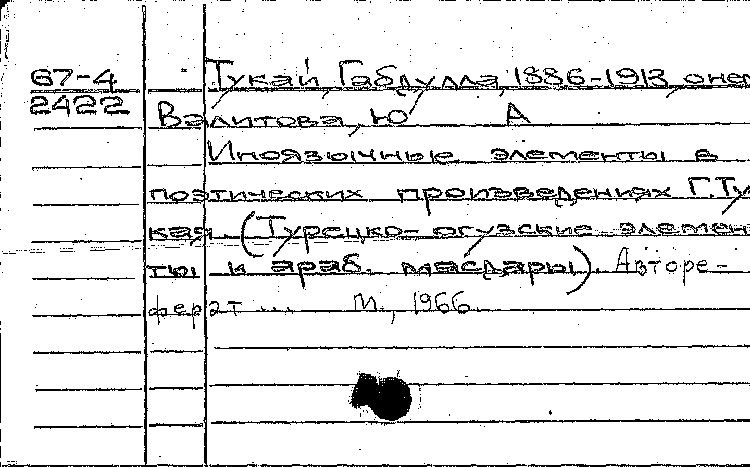 67-4 Тукай, Габдулла, 1886-1913, о нем
2422 Валитова, Ю А
Иноязычные элементы в
поэтических произведениях Г.Ту
кая. (Турецко-огузские элемен
ты и араб. масдары). Авторе-
ферат ... М., 1966.